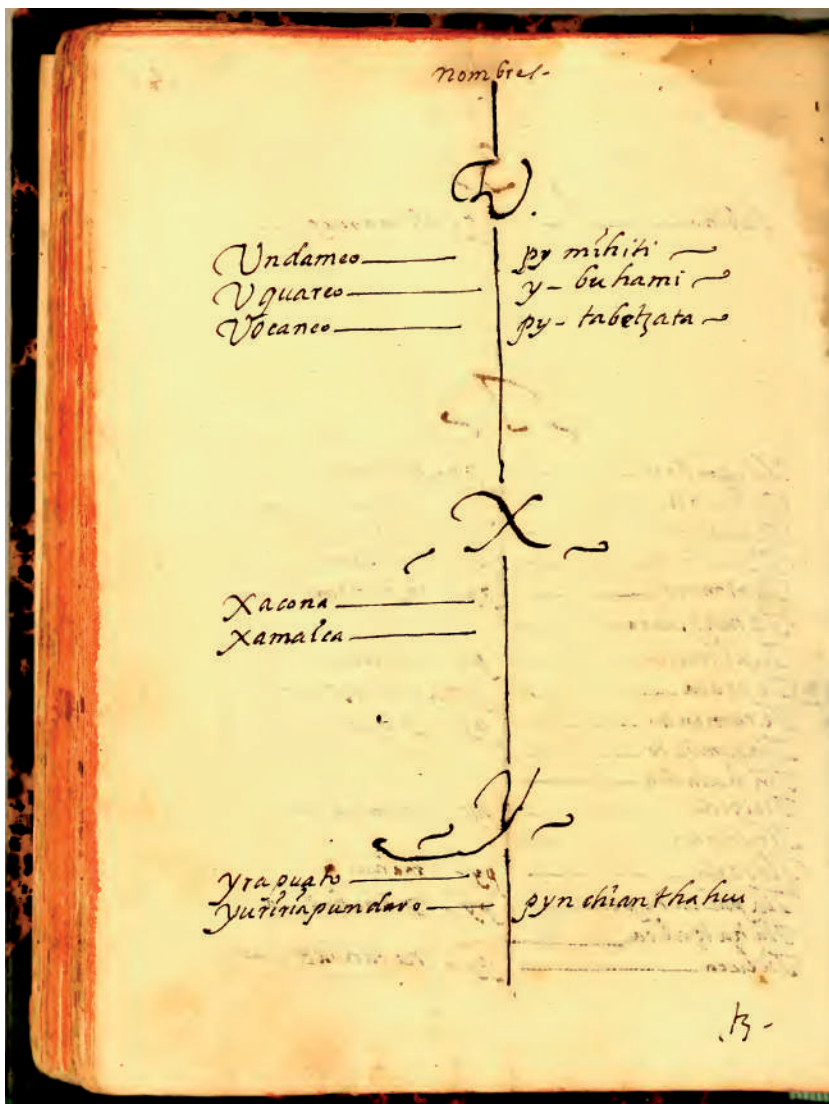 nombres-
V.
Undameo py mihiti
Vquareo y- buhami
Vocaneo py- tabetzata
X
Xacona
Xamalca
Y
Yrapuato
Yuririapundaro pyn chianthahui
tz-